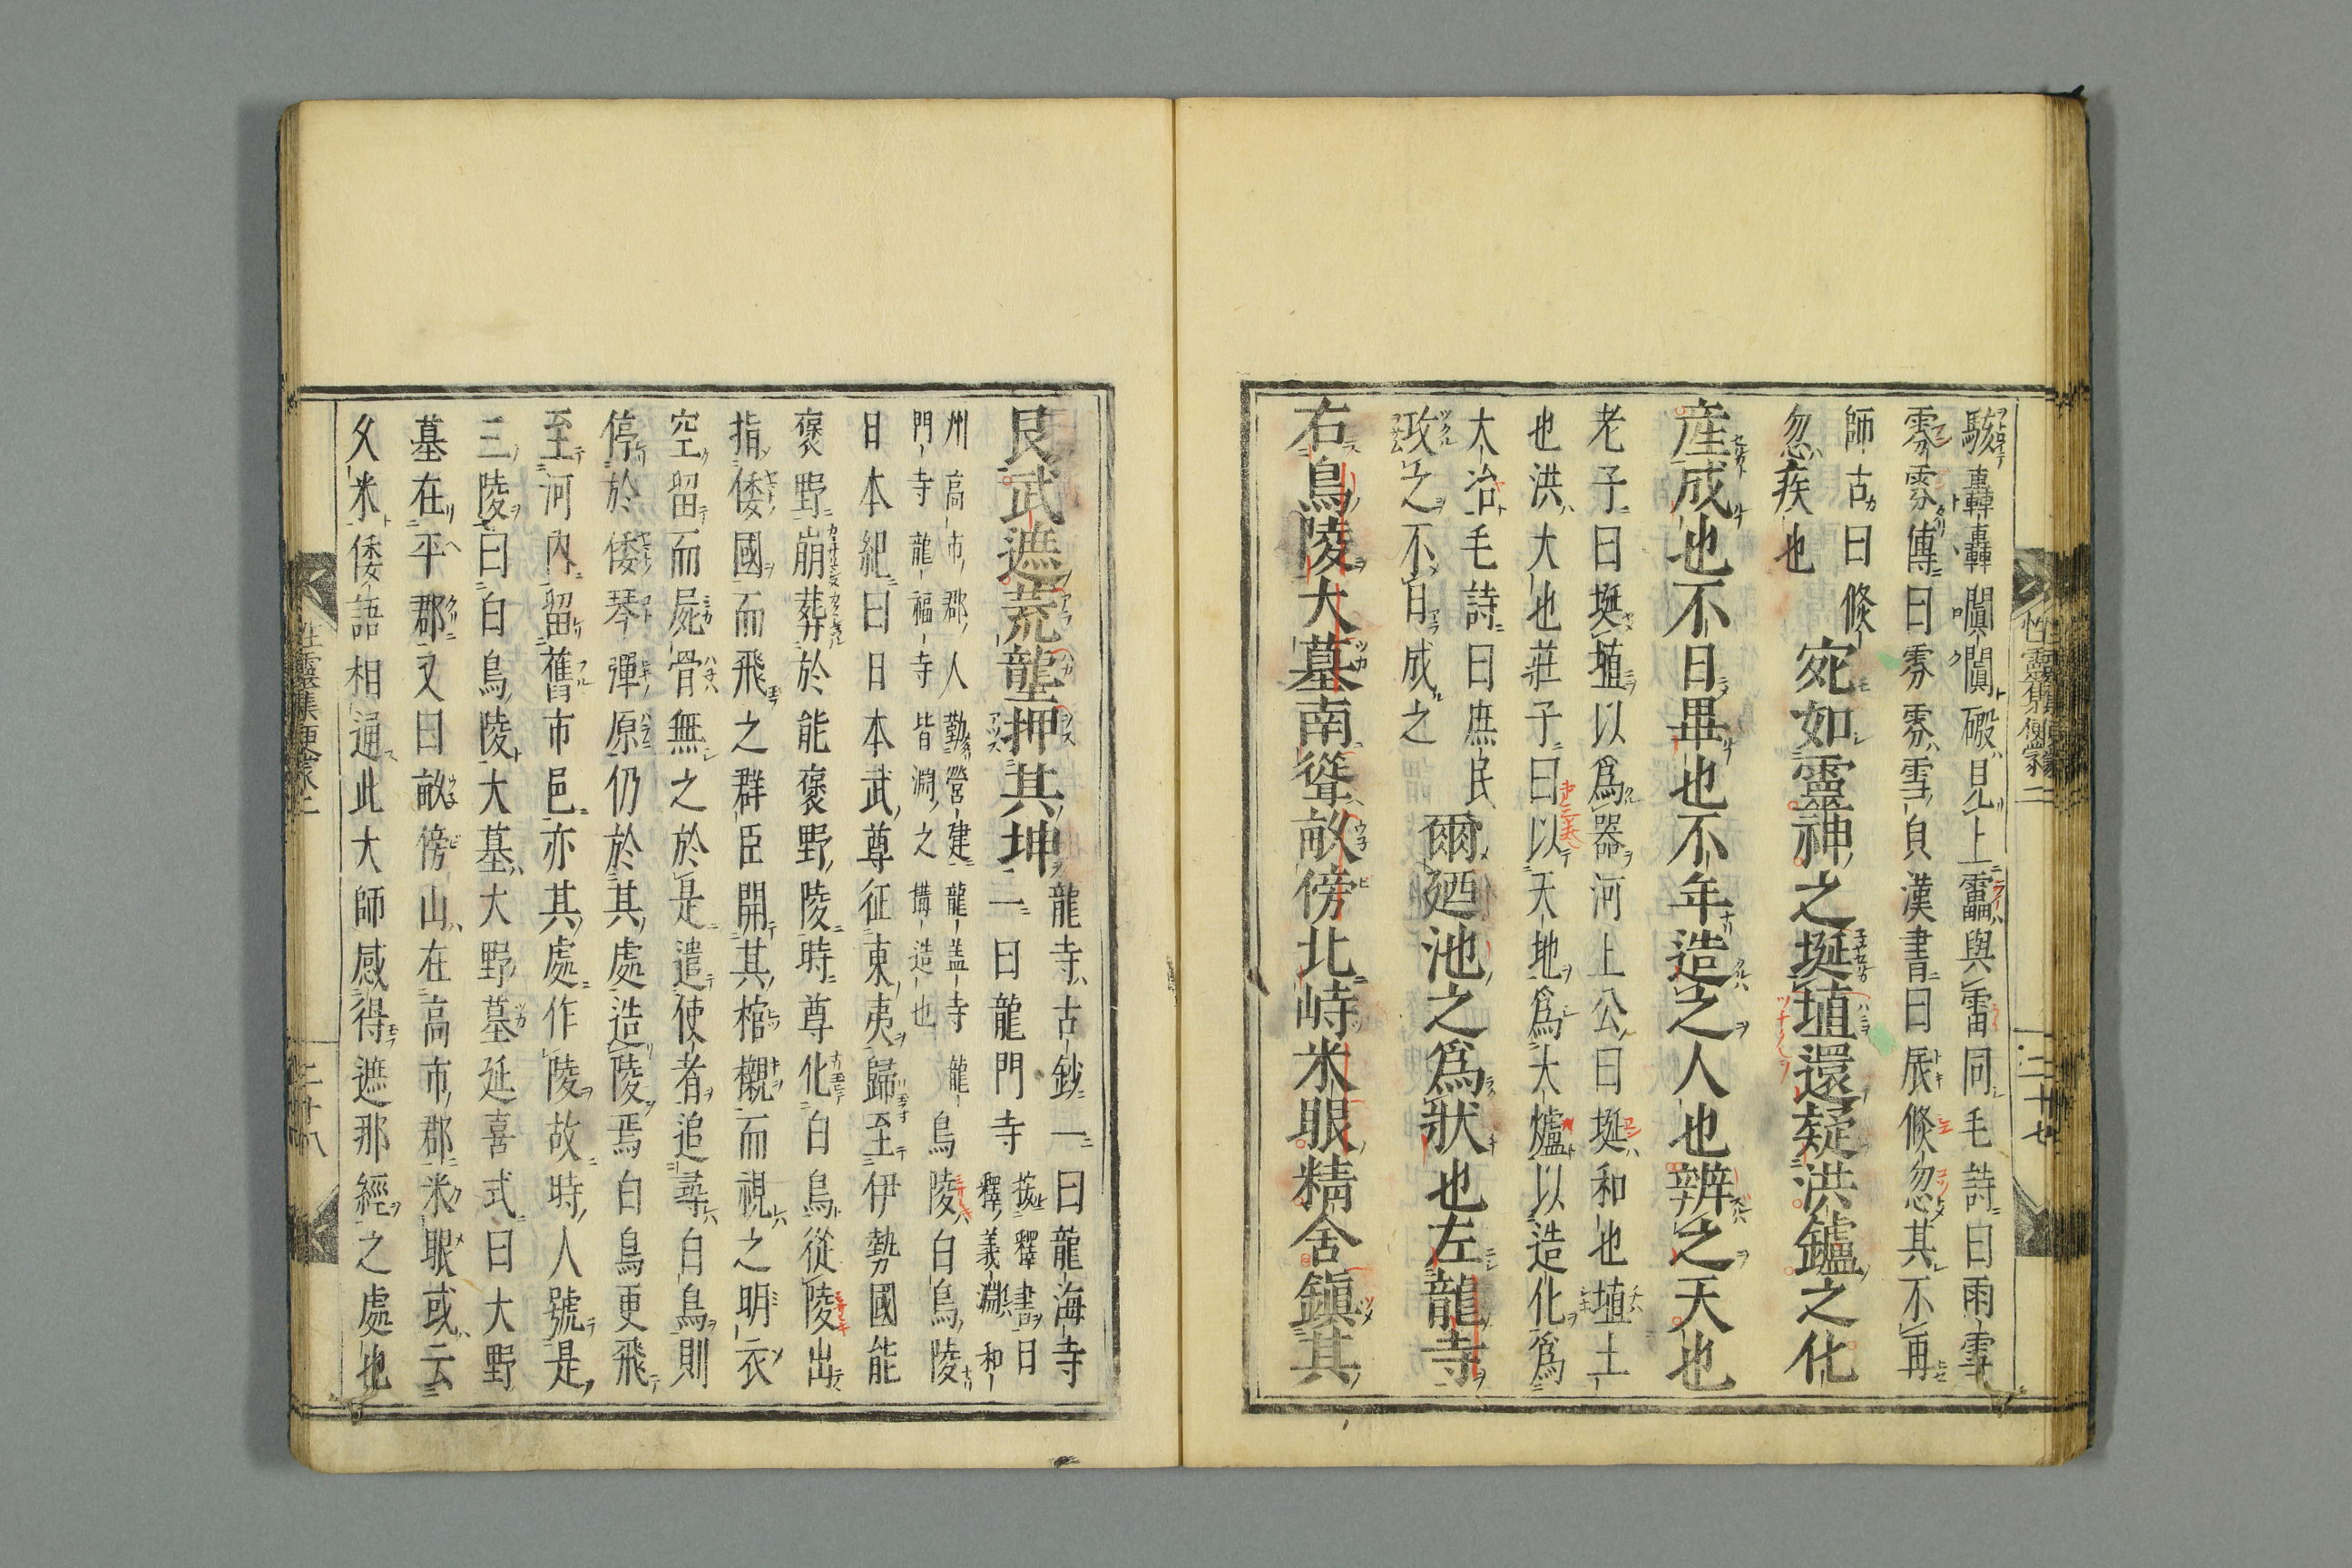 駭轟轟闐闐磤見上靁與雷同毛詩曰雨雪
雰雰傳曰雰雰雪貌漢書曰辰倏忽其不再
師古曰倏
忽疾也
宛如靈神之埏埴還疑洪鑪之化
産成也不日畢也不年造之人也辨之天也
老子曰埏埴以爲器河上公曰埏和也埴土
也洪大也莊子曰以天地爲大爐以造化爲
大冶毛詩曰庶民
攻之不日成之
爾廼池之爲狀也左龍寺
右鳥陵大墓南聳畝傍北峙米眼精舍鎭其
性靈集便蒙二
二十七
艮武遮荒壟押其坤
龍寺古鈔一曰龍海寺
二曰龍門寺
按釋書曰
釋義淵和
州高市郡人勤營建龍蓋寺龍
門寺龍福寺皆淵之搆造也
鳥陵白鳥陵
日本紀曰日本武尊征東夷歸至伊勢國能
褒野崩葬於能褒野陵時尊化白鳥從陵出
指倭國而飛之群臣開其棺櫬而視之明衣
空留而屍骨無之於是遣使者追尋白鳥則
停於倭琴彈原仍於其處造陵焉白鳥更飛
至河內留舊市邑亦其處作陵故時人號是
三陵曰白鳥陵大墓大野墓延喜式曰大野
墓在平郡又曰畝傍山在高市郡米眼或云
久米倭語相通此大師感得遮那經之處也
性靈集便蒙二
二十八